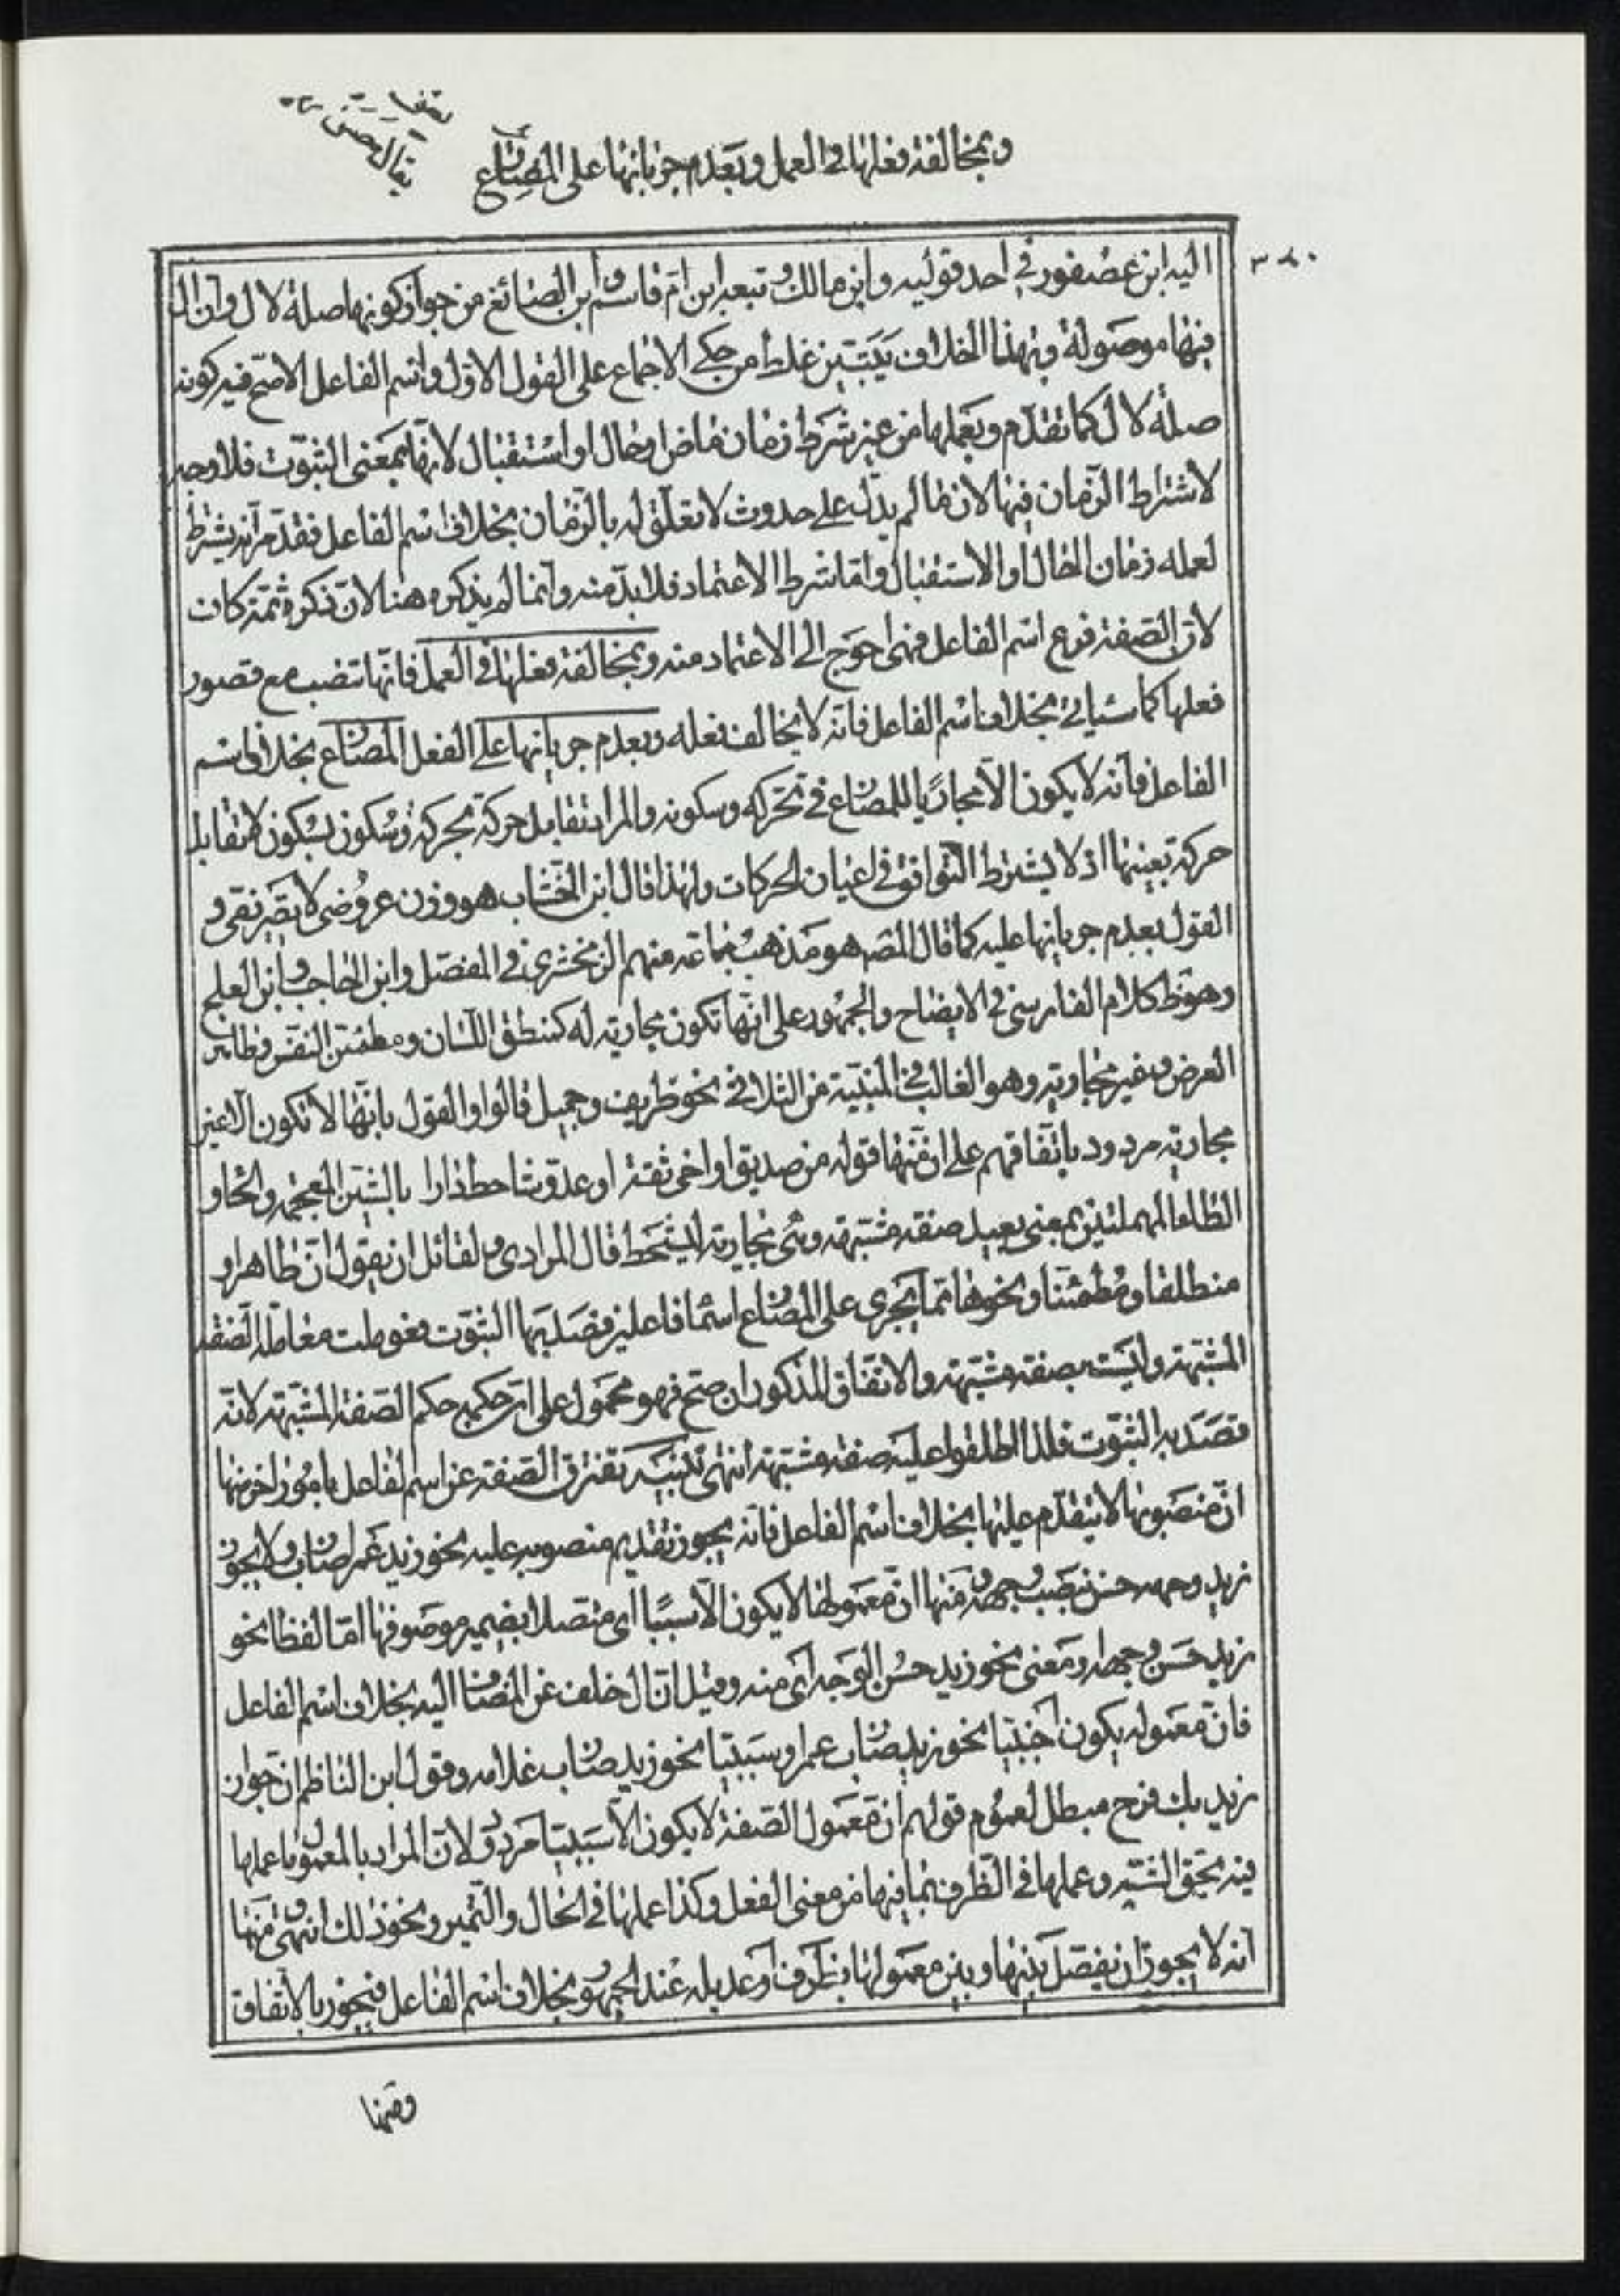 وبمخالفة فعلها في العمل وبعدم جريانها على المضارع
٣٨٠
اليه ابن عصفور في احد قوليه وابن مالك وتبعه ابن ام قاسم وابن الصائغ من جواز كونها صلة لال وان ال
فيها موصولة وبهذا الخلاف يتبين غلط من حكى الاجماع على القول الاول واسم الفاعل الاصح فيه كونه
صلة لال كما تقدم وبعملها من غير شرط زمان ماض او حال او استقبال لانها بمعنى الثبوت فلا وجه
لاشتراط الزمان فيها لان ما لم يدل على حدوث لا تعلق له بالزمان بخلاف اسم الفاعل فقد مر انه يشترط
لعمله زمان الحال او الاستقبال واما شرط الاعتماد فلا بد منه وانما لم يذكره هنا لان ذكره ثمة كاف
لان الصفة فرع اسم الفاعل فهي احوج الى الاعتماد منه وبمخالفة فعلها في العمل فانها تنصب مع قصور
فعلها كما سياتي بخلاف اسم الفاعل فانه لا يخالف فعله وبعدم جريانها على الفعل المضارع بخلاف اسم
الفاعل فانه لا يكون الا مجاريا للمضارع في تحركه وسكونه والمراد تقابل حركة بحركة وسكون بسكون لا تقابل
حركة بعينها اذ لا يشترط التوافق في اعيان الحركات ولهذا قال ابن الخشاب هو وزن عروضي لا تصريفي و
القول بعدم جريانها عليه كما قال المص هو مذهب جماعة منهم الزمخشري في المفصل وابن الحاجب وابن العلج
وهو ظ كلام الفارسي في الايضاح والجمهور على انها تكون مجارية له كمنطلق اللسان ومطمئن النفس وطاهر
العرض وغير مجارية وهو الغالب في المبنية من الثلاثي نحو ظريف وجميل قالوا والقول بانها لا تكون الا غير
مجارية مردود باتفاقهم على ان منها قوله من صديق او اخي ثقة او عدو شاحط دارا بالشين المعجمة والحاء و
الطاء المهملتين بمعنى بعيد صفة مشبهة وهي مجارية ليشحط قال المرادي ولقائل ان يقول ان طاهرا و
منطلقا ومطمئنا ونحوها مما يجري على المضارع اسماء فاعلين قصد بها الثبوت فعوملت معاملة الصفة
المشبهة وليست بصفة مشبهة والاتفاق المذكور ان صح فهو محمول على ان حكمه حكم الصفة المشبهة لانه
قصد به الثبوت فلذا اطلقوا عليه صفة مشبهة انتهى تنبيه تفترق الصفة عن اسم الفاعل بامور اخر منها
ان منصوبها لا يتقدم عليها بخلاف اسم الفاعل فانه يجوز تقديم منصوبه عليه نحو زيد عمرا ضارب ولا يجوز
زيد وجهه حسن بنصب وجهه ومنها ان معمولها لا يكون الا سببيا اى متصلا بضمير موصوفها اما لفظا نحو
زيد حسن وجهه او معنى نحو زيد حسن الوجه اى منه وقيل ان ال خلف عن المضاف اليه بخلاف اسم الفاعل
فان معموله يكون اجنبيا نحو زيد ضارب عمرا وسببيا نحو زيد ضارب غلامه وقول ابن الناظم ان جواز
زيد بك فرح مبطل لعموم قولهم ان معمول الصفة لا يكون الا سببيا مردود لان المراد بالمعمول ما عملها
فيه بحق الشبه وعملها في الظرف بما فيها من معنى الفعل وكذا عملها في الحال والتمييز ونحو ذلك انتهى ومنها
انه لا يجوز ان يفصل بينها وبين معمولها بظرف او عديله عند الجمهور بخلاف اسم الفاعل فيجوز بالاتفاق
ومنها